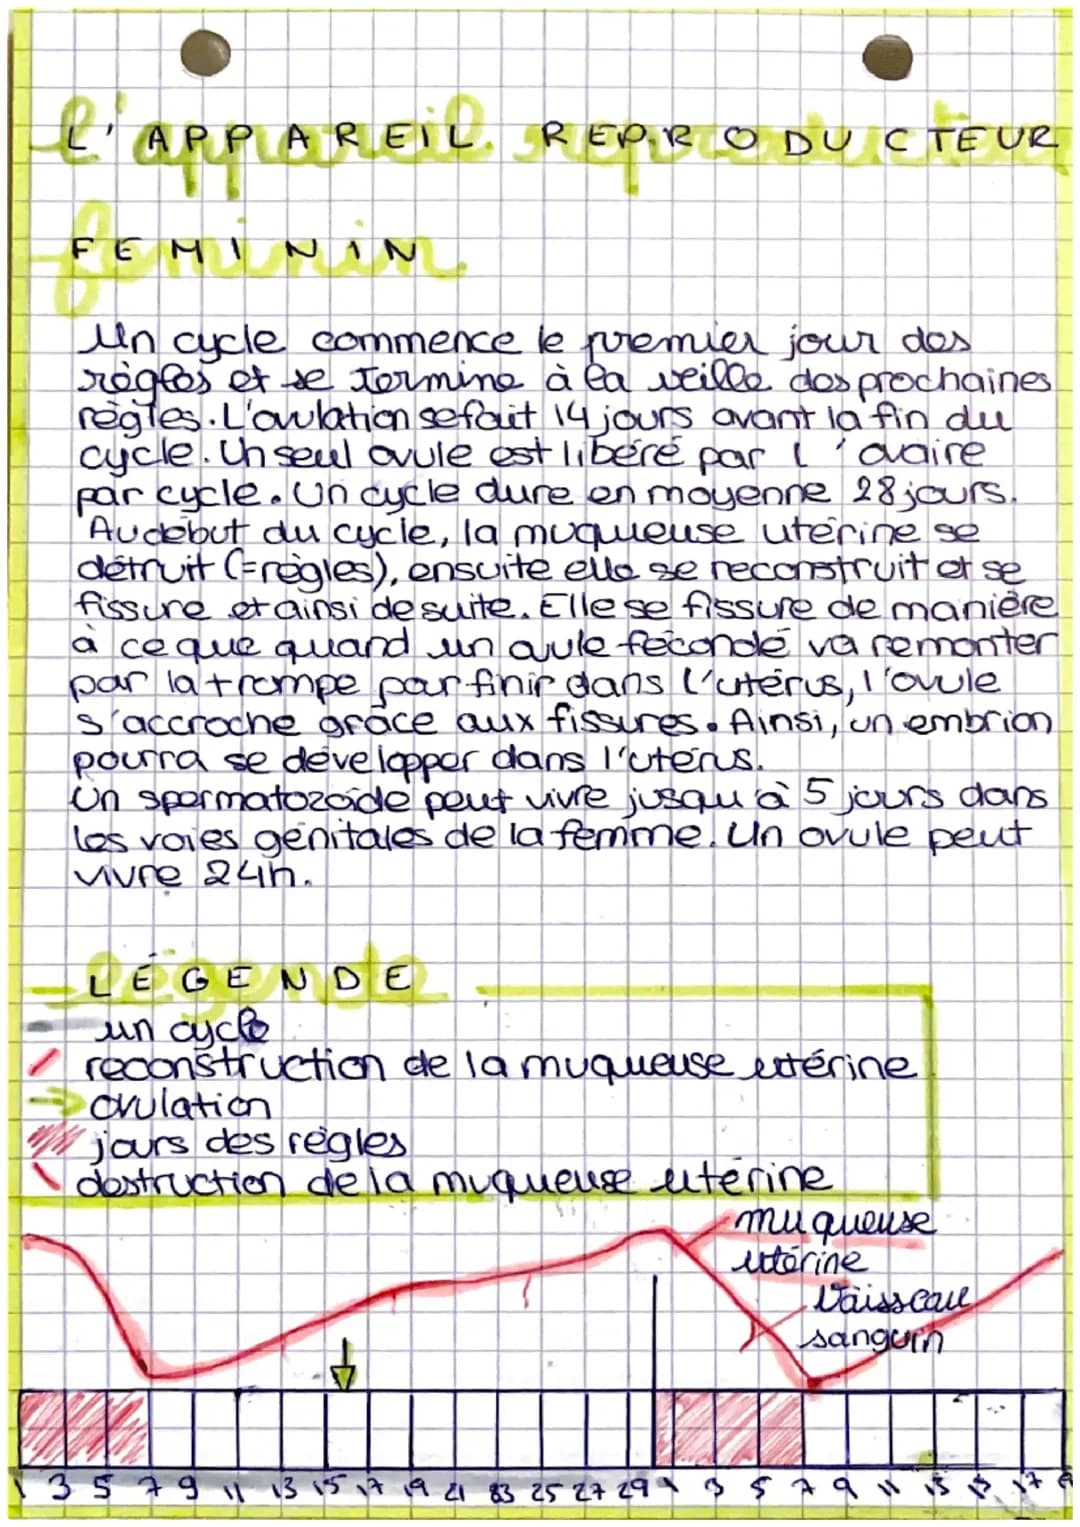 L'APPAREIL REPRODUCTEUR
FEMININ
Un cycle commence le premier jour des
règles et se termine à la veille des prochaines
règles. L'ovulation se fait 14 jours avant la fin du
cycle. Un seul ovule est libéré par l'ovaire
par cycle. Un cycle dure en moyenne 28 jours.
Au début du cycle, la muqueuse utérine se
détruit (=règles), ensuite elle se reconstruit et se
fissure et ainsi de suite. Elle se fissure de manière
à ce que quand un ovule fécondé va remonter
par la trompe par finir dans l'utérus, l'ovule
s'accroche grâce aux fissures. Ainsi, un embrion
pourra se développer dans l'utérus.
Un spermatozoïde peut vivre jusqu'à 5 jours dans
les voies génitales de la femme. Un ovule peut
vivre 24h.
LÉGENDE
un cycle
reconstruction de la muqueuse utérine
ovulation
jours des règles
destruction de la muqueuse utérine
muqueuse
utérine
Vaisseau
sanguin
1 3 5 7 9 11 13 15 17 19 21 23 25 27 29 1 3 5 7 9 11 13 15 17